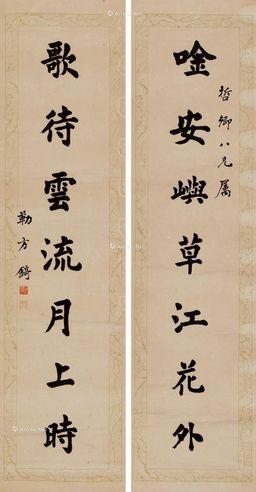 唫安嶼草江花外
哲卿八兄屬
歌待雲流月上時
勒方錡